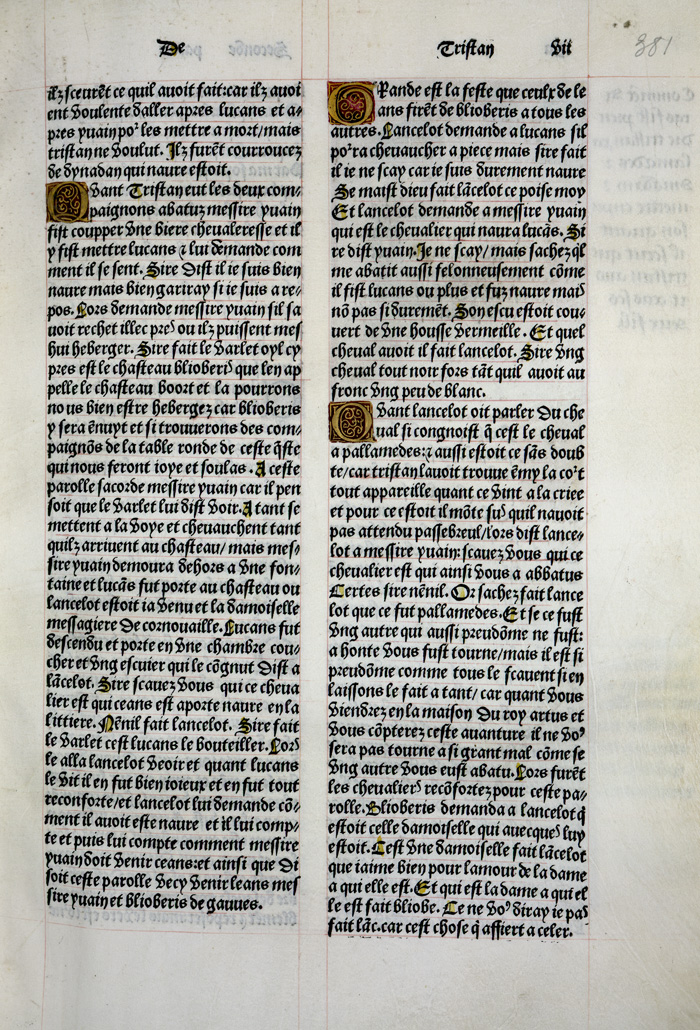 De
Tristan Vii
381
ilz sceurẽt ce quil auoit fait:car ilz auoi
ent Voulente daller apres lucans et a⸗
pres yuain po² les mettre a mort/mais
tristan ne Voulut. Ilz furẽt courroucez
de dynadan qui naure estoit.
QVant Tristan eut les deux com⸗
paignons abatuz messire yuain
fist coupper Vne biere cheualeresse et il
y fist mettre lucans ⁊ lui demande com
ment il se sent. Sire Dist il ie suis bien
naure mais bien gariray si ie suis a re⸗
pos. Lors demande messire yuain sil sa
uoit rechet illec pres ou ilz puissent mes
hui heberger. Sire fait le Varlet oyl cy
pres est le chasteau blioberis que len ap
pelle le chasteau boort et la pourrons
nous bien estre hebergez car blioberis
y sera ẽnuyt et si trouuerons des com⸗
paignõs de la table ronde de ceste q̃ste
qui nous feront ioye et soulas. A ceste
parolle sacorde messire yuain car il pen
soit que le Varlet lui dist Voir. A tant se
mettent a la Voye et cheuauchent tant
quilz arriuent au chasteau/ mais mes⸗
sire yuain demoura dehors a Vne fon⸗
taine et lucãs fut porte au chasteau ou
lancelot estoit ia Venu et la damoiselle
messagiere De cornouaille. Lucans fut
descendu et porte en Vne chambre cou⸗
cher et Vng escuier qui le cõgnut Dist a
lãcelot. Sire scauez Vous qui ce cheua
lier est qui ceans est aporte naure en la
littiere. Nẽnil fait lancelot. Sire fait
le Varlet cest lucans le bouteiller. Lors
le alla lancelot Veoir et quant lucans
le Vit il en fut bien ioieux et en fut tout
reconforte/et lancelot lui demande cõ⸗
ment il auoit este naure et il lui comp⸗
te et puis lui compte comment messire
yuain doit Venir ceans:et ainsi que Di
soit ceste parolle Vecy Venir leans mes
sire yuain et blioberis de gauues.
GRande est la feste que ceulx de le
ans firẽt de blioberis a tous les
autres. Lancelot demande a lucans sil
po²ra cheuaucher a piece mais sire fait
il ie ne scay car ie suis durement naure
Se maist dieu fait lãcelot ce poise moy
Et lancelot demande a messire yuain
qui est le cheualier qui naura lucãs. Si
re dist yuain. Je ne scay/ mais sachez q̃l
me abatit aussi felonneusement cõme
il fist lucans ou plus et fuz naure mais
nõ pas si duremẽt. Son escu estoit cou⸗
uert de Vne housse Vermeille. Et quel
cheual auoit il fait lancelot. Sire Vng
cheual tout noir fors tãt quil auoit au
fronc Vng peu de blanc.
QVant lancelot oit parler Du che
ual si congnoist q̃ cest le cheual
a pallamedes:⁊ aussi estoit ce sãs doub
te/car tristan lauoit trouue ẽmy la co²t
tout appareille quant ce Vint a la criee
et pour ce estoit il mõte sus quil nauoit
pas attendu passebreul/lors dist lance⸗
lot a messire yuain: scauez Vous qui ce
cheualier est qui ainsi Vous a abbatus
Certes sire nẽnil. Or sachez fait lance
lot que ce fut pallamedes. Et se ce fust
Vng autre qui aussi preudõme ne fust:
a honte Vous fust tourne/mais il est si
preudõme comme tous le scauent si en
laissons le fait a tant/ car quant Vous
Viendrez en la maison Du roy artus et
Vous cõpterez ceste auanture il ne Vo⁹
sera pas tourne a si grant mal cõme se
Vng autre Vous eust abatu. Lors furẽt
les cheualiers recõfortez pour ceste pa⸗
rolle. Blioberis demanda a lancelot q̃
estoit celle damoiselle qui auecques luy
estoit. Cest Vne damoiselle fait lãcelot
que iaime bien pour lamour de la dame
a qui elle est. Et qui est la dame a qui el
le est fait bliobe. Ce ne Vo⁹ diray ie pas
fait lãc. car cest chose q̃ affiert a celer.